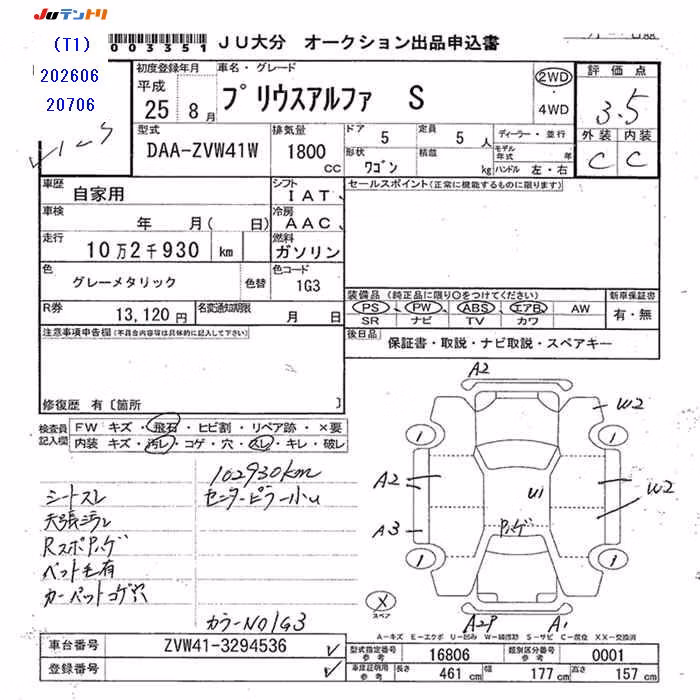 JUテントリ
(T1)
202606
20706
003351 JU大分 オークション出品申込書
初度登録年月
平成
25年 8月
車名・グレード
プリウスアルファ S
2WD
・
4WD
評価点
3.5
外装 内装
C C
型式
DAA-ZVW41W
排気量
1800
CC
ドア 5
定員 5 人
形状 ワゴン
積載 kg
ディーラー・並行
モデル年式 年
ハンドル 左・右
車歴
自家用
シフト
IAT
車検
年 月( 日)
冷房
AAC
走行
10万2千930 km
燃料
ガソリン
色
グレーメタリック
色替
色コード
1G3
R券
13,120円
名変通知期限
月 日
セールスポイント(正常に機能するものに限ります)
装備品(純正品に限り○をつけてください)
PS ・ PW ・ ABS ・ エアB ・ AW
SR ナビ TV カワ
新車保証書
有・無
後日品
保証書・取説・ナビ取説・スペアキー
注意事項申告欄(不具合内容等は具体的に記入して下さい)
修復歴 有〔箇所 〕
検査員
記入欄
FW キズ・飛石・ヒビ割・リペア跡・×要
内装 キズ・汚レ・コゲ・穴・スレ・キレ・破レ
102930km
シートスレ
センターピラー小U
天張ミラレ
RスポPハゲ
ペット毛有
カーペットコゲ穴
カラーNO1G3
A2
W2
1
1
A2
U1
W2
A3
Pハゲ
1
1
X
スペア
A2P
A1
A-キズ E-エクボ U-凹み W-補修跡 S-サビ C-腐蝕 XX-交換済
車台番号
ZVW41-3294536
登録番号
型式指定番号
参考
16806
類別区分番号
参考
0001
車庫証明用
参考
長さ 461 cm 幅 177 cm 高さ 157 cm